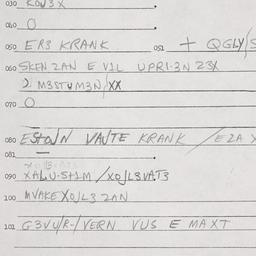 030 KOV3X
040 O
050 ER3 KRANK 051 + QGLY/S
060 SKEN 2AN E V1L UPR1·3N 23X
D. M3STUM3N/XX
070 O
080 ESTO/N VAJTE KRANK / E2A X
081
090 XALU·5+1M /XO/L3VAT3
100 MVAKEXO/L3 2AN
101 G3VU/R-/VERN VUS E MAXT